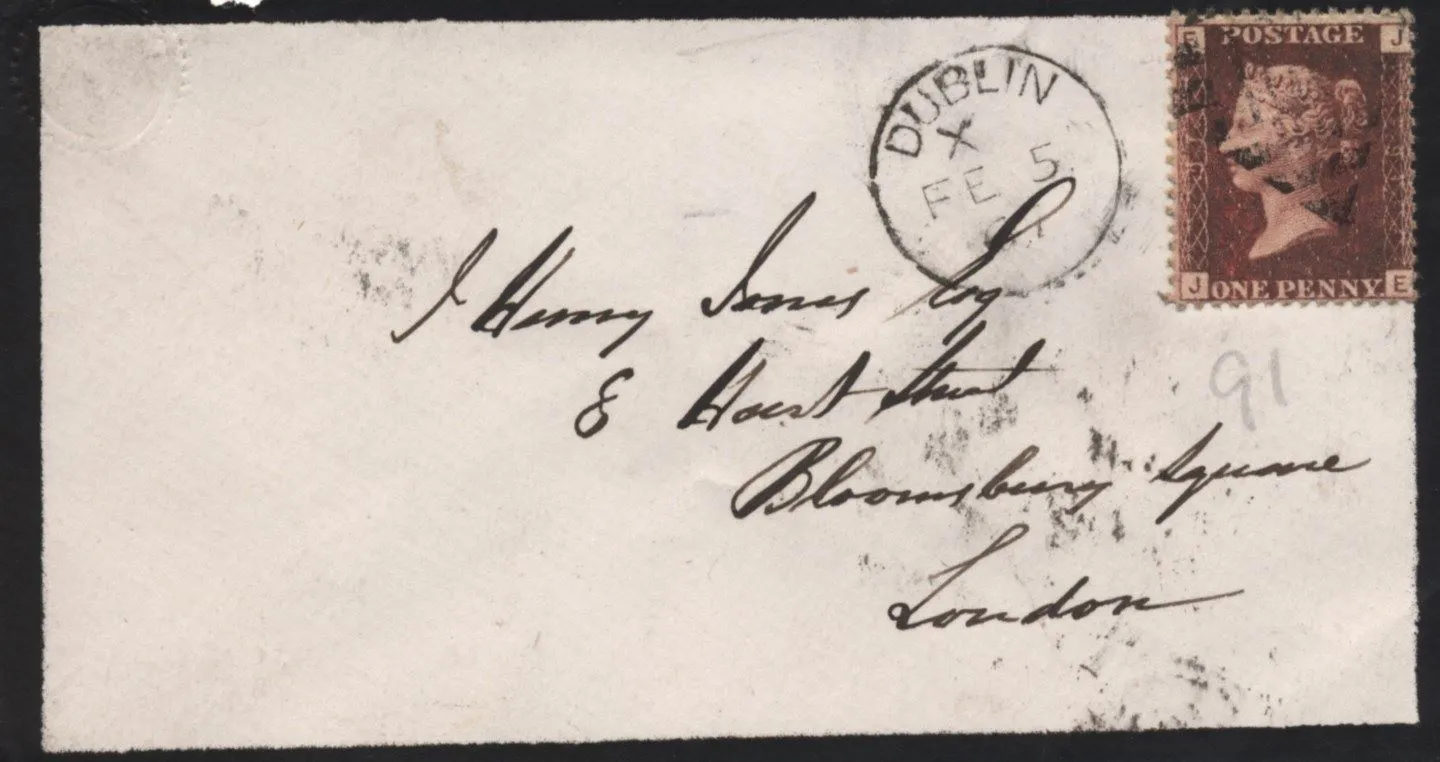 E POSTAGE J
DUBLIN
X
FE 5
J Henry Jones Esq
J ONE PENNY E
8 Hart Street
91
Bloomsbury Square
London